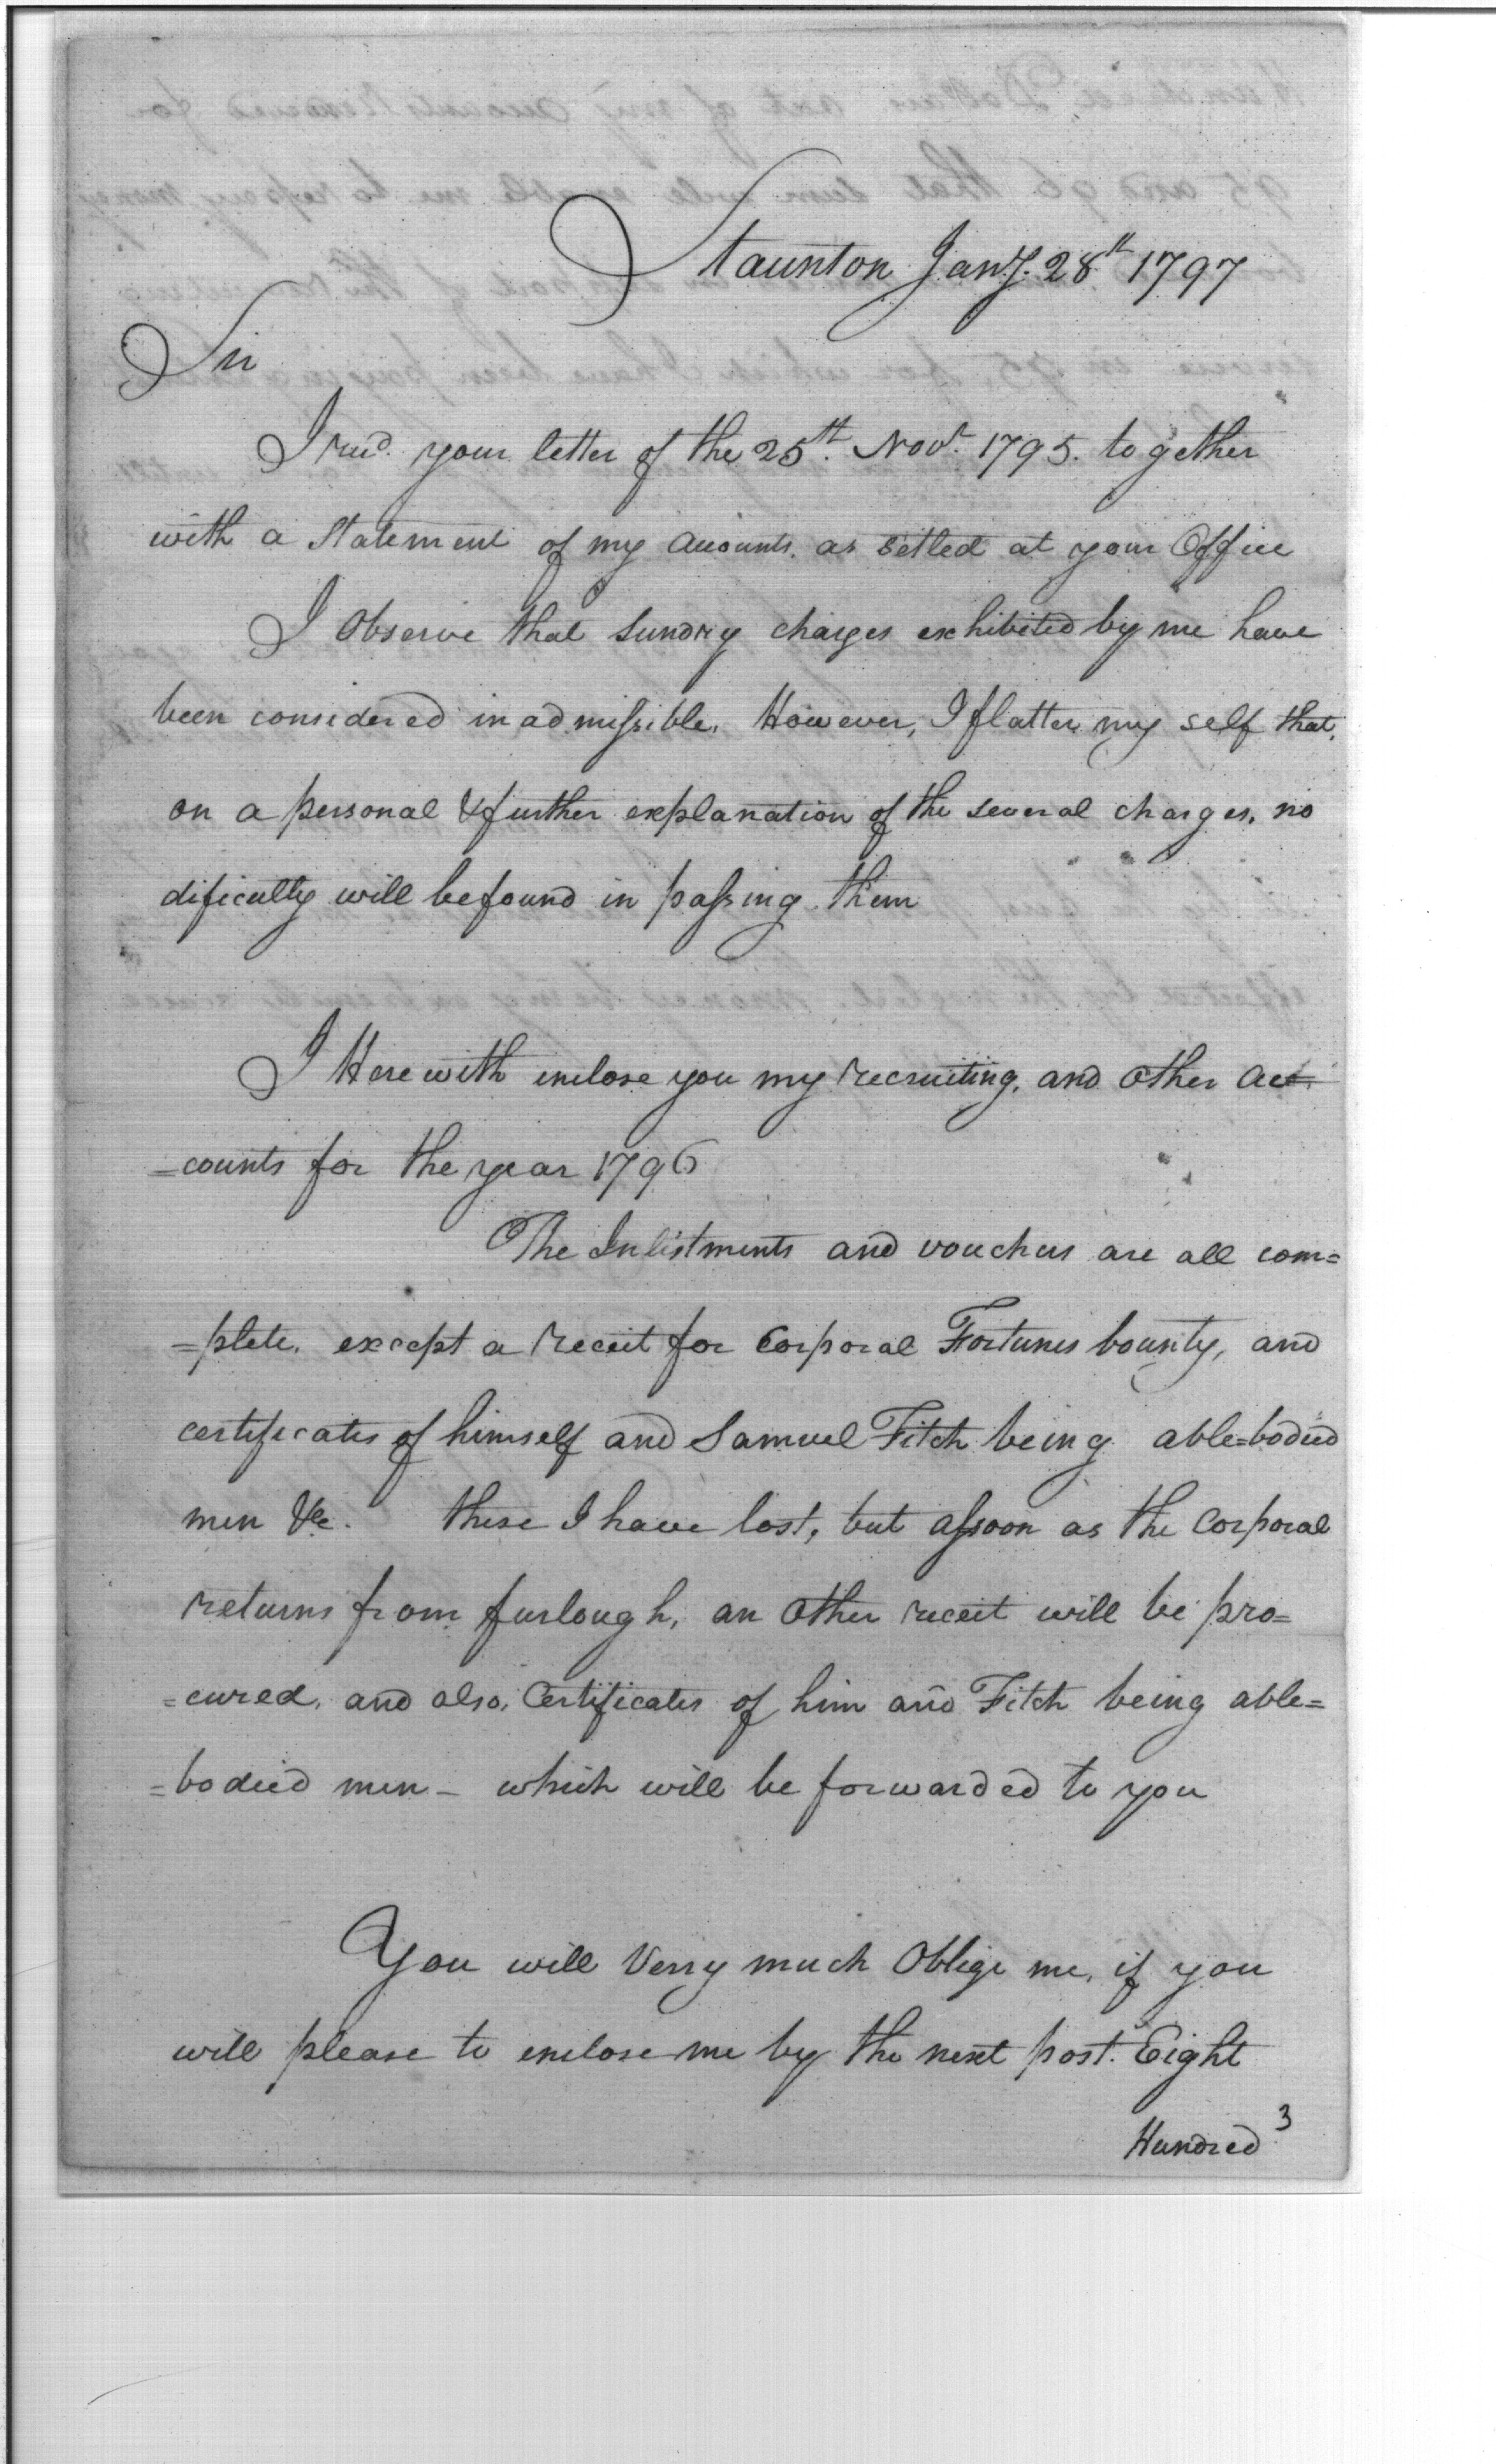 Staunton Jany. 28th 1797
Sir
I recd. your letter of the 25th. Novr. 1795. together
with a Statement of my accounts. as setled at your Office
I Observe that sundry charges exhibited by me have
been considered inadmissible. However, I flatter my self that,
on a personal & further explanation of the several charges, no
dificulty will be found in passing them
I Herewith inclose you my recruiting, and other ac=
=counts for the year 1796
The Inlistments and vouchers are all com=
=plete. except a receit for Corporal Fortunes bounty, and
certificates of himself and Samuel Fitch being able=bodied
men &c. these I have lost, but assoon as the Corporal
returns from furlough, an other receit will be pro=
=cured. and also, Certificates of him and Fitch being able=
=bodied men - which will be forwarded to you
You will Verry much Oblige me, if you
will please to enclose me by the next post. Eight
Hundred 3